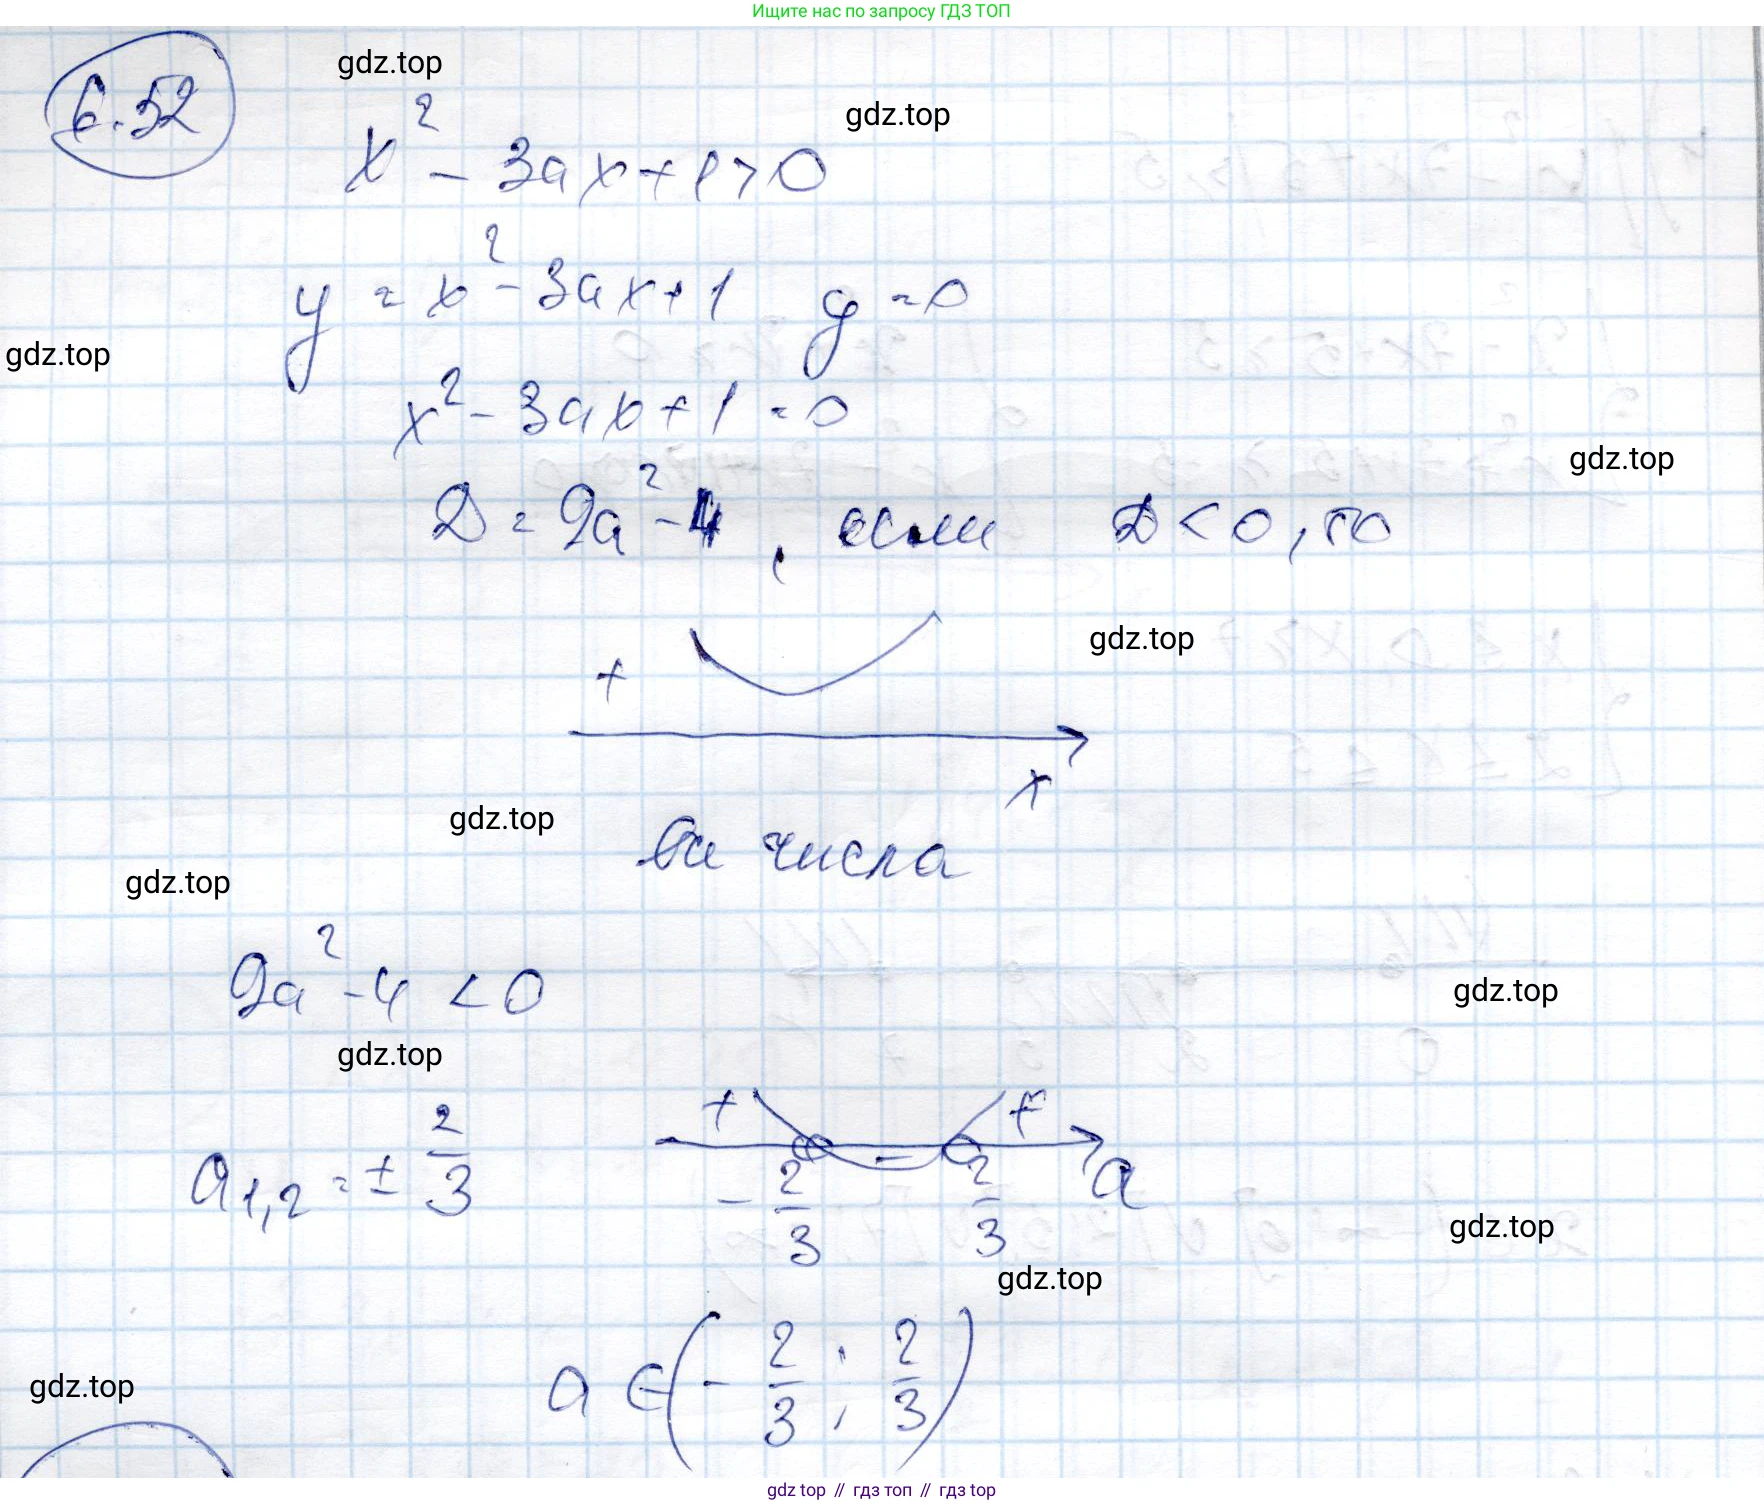 Ищите нас по запросу ГДЗ ТОП
6.52
gdz.top
gdz.top
x² - 3ax + 1 > 0
y = x² - 3ax + 1 y = 0
gdz.top
x² - 3ax + 1 = 0
gdz.top
D = 9a² - 4, если D < 0, то
gdz.top
+
x
gdz.top
все числа
gdz.top
9a² - 4 < 0
gdz.top
gdz.top
a₁,₂ = ± 2/3
+ - +
- 2/3 2/3 a
gdz.top
gdz.top
a ∈ (- 2/3 ; 2/3)
gdz.top
gdz top // гдз топ // gdz top